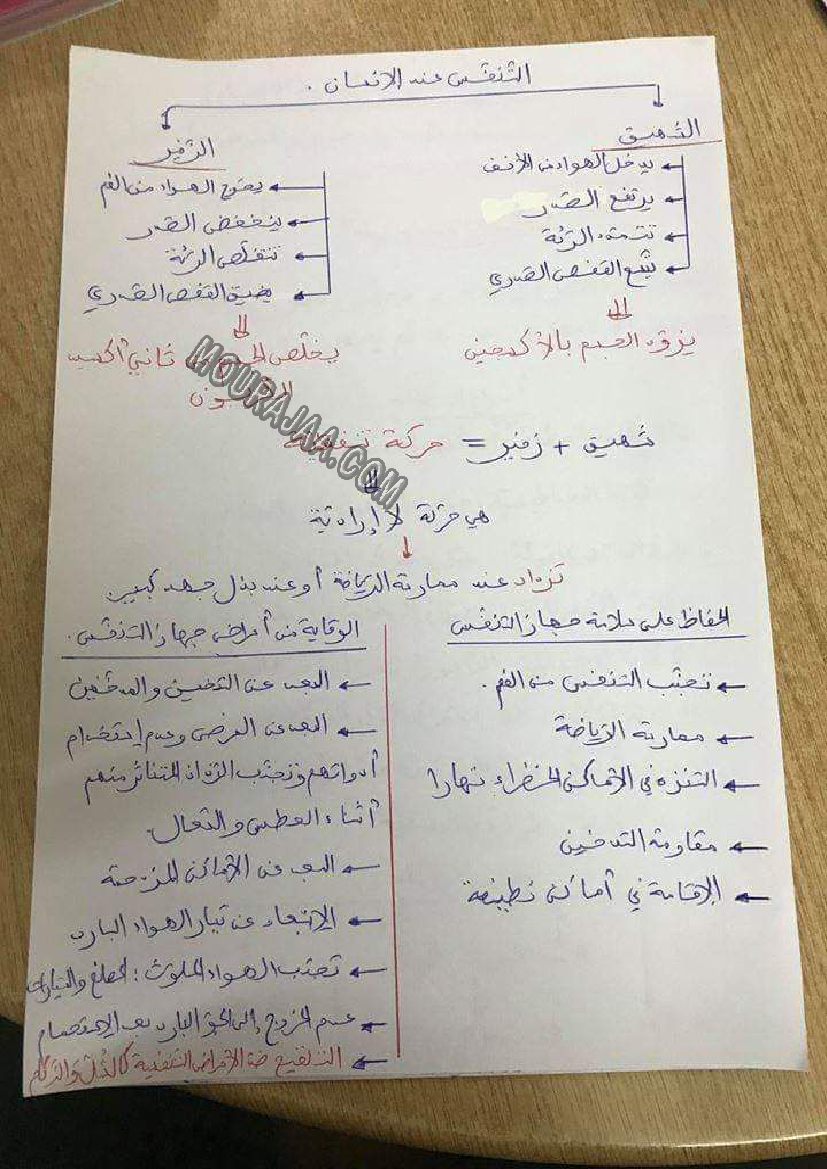 التنفس عند الإنسان .
الشهيق
يدخل الهواء من الأنف
يرتفع الصدر
تتمدد الرئة
يتسع القفص الصدري
يزود الجسم بالأكسجين
الزفير
يخرج الهواء من الفم
ينخفض الصدر
تتقلص الرئة
يضيق القفص الصدري
يخلص ثاني أكسيد
شهيق + زفير = حركة تنفسية
هي حركة لا إرادية
تزداد عند ممارسة الرياضة أو عند بذل جهد كبير
الحفاظ على سلامة جهاز التنفس
تجنب التنفس من الفم .
ممارسة الرياضة
التنزه في الأماكن الخضراء نهارا
مقاومة التدخين
الإقامة في أماكن نظيفة
الوقاية من أمراض جهاز التنفس .
البعد عن التدخين والمدخنين
البعد عن المرضى وعدم إستخدام
أدواتهم وتجنب الرذاذ المتناثر منهم
أثناء العطس والسعال
البعد عن الأماكن المزدحمة
الإبتعاد عن تيار الهواء البارد
تجنب الهواء الملوث : المصانع والسيارات
عدم الخروج إلى الجو البارد بعد الإستحمام
التلقيح ضد الأمراض التنفسية كالسل والزكام
MOURAJAA.COM